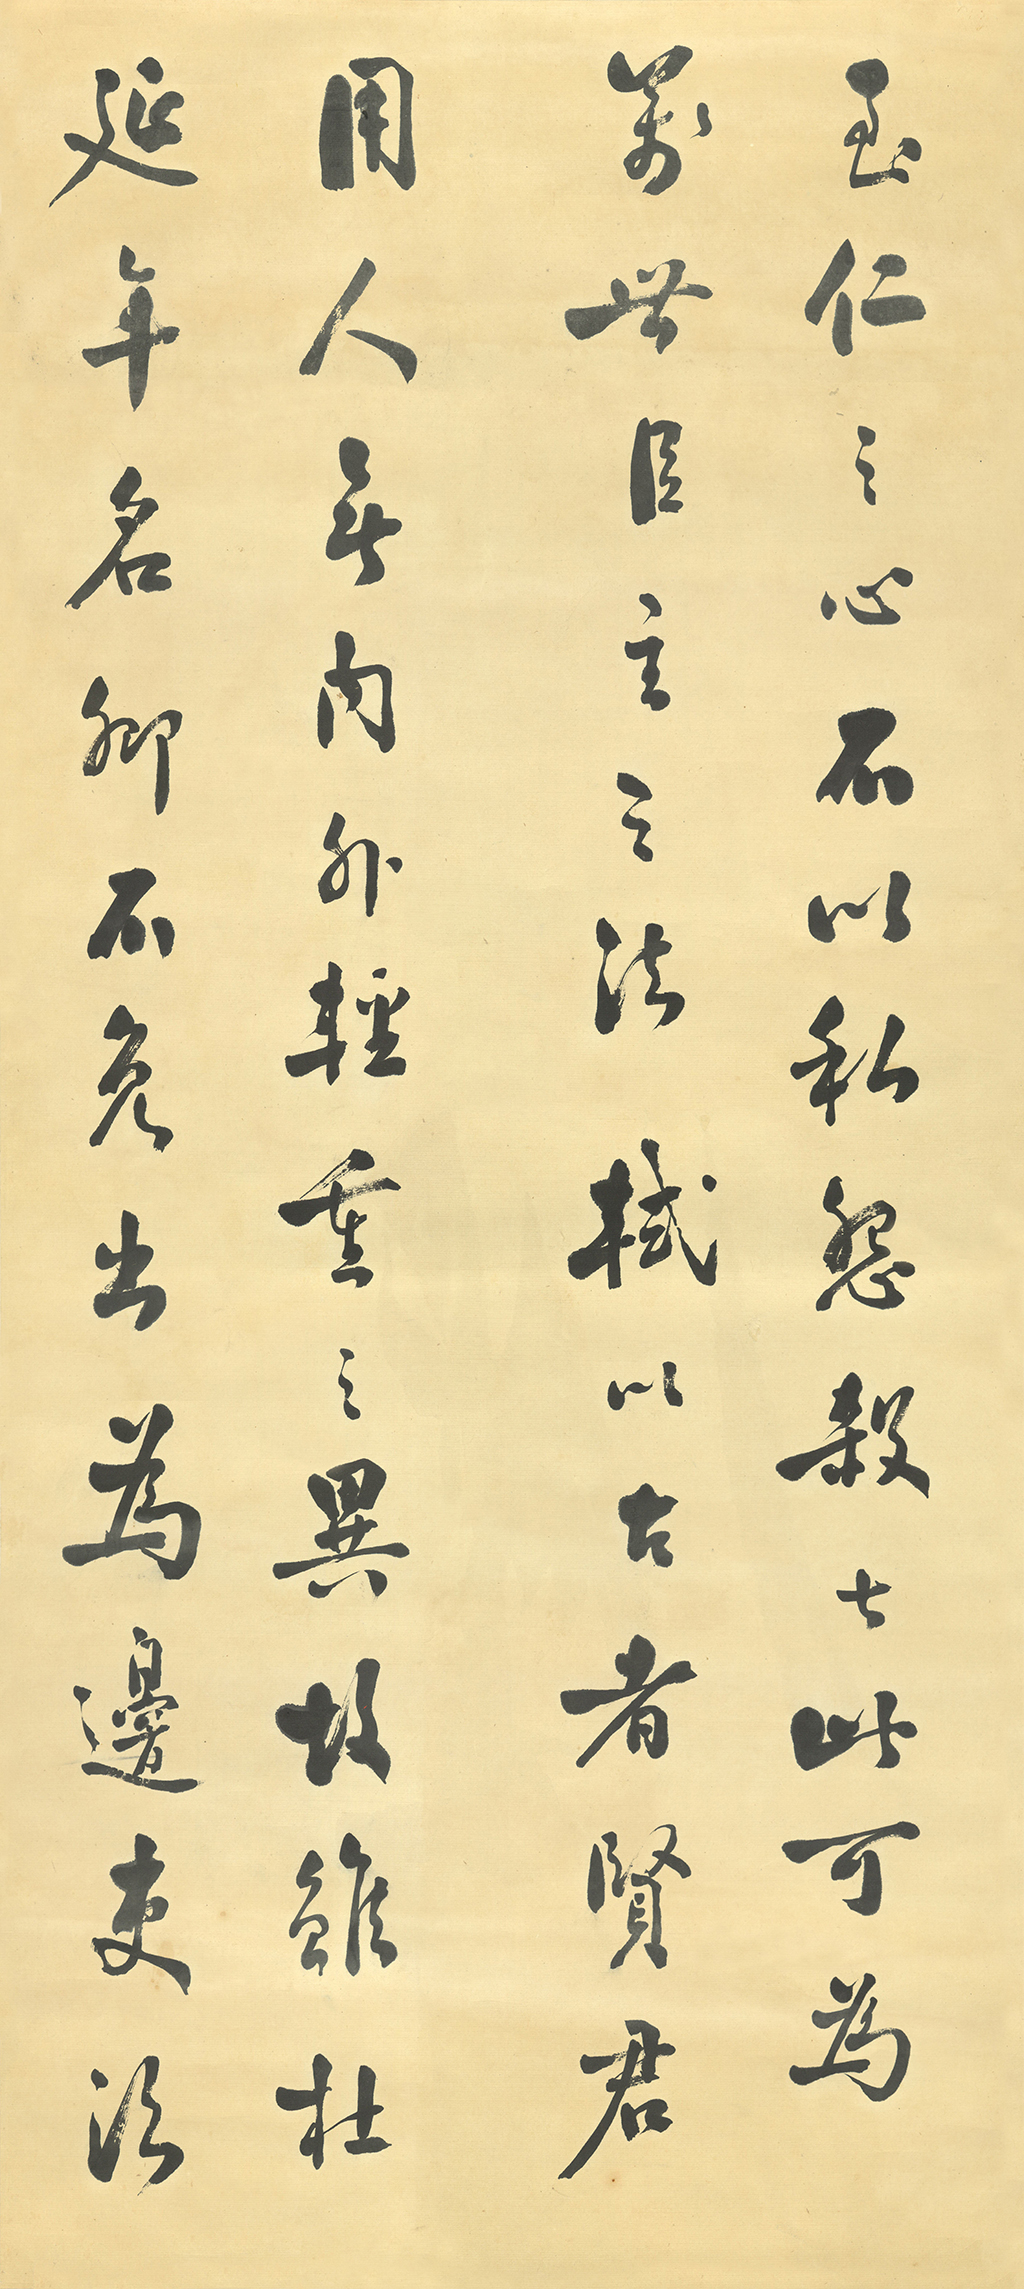 至仁之心不以私怨殺士此可為
萬世臣主之法軾以古者賢君
用人無內外輕重之異故雖杜
延年名卿不免出為邊吏治